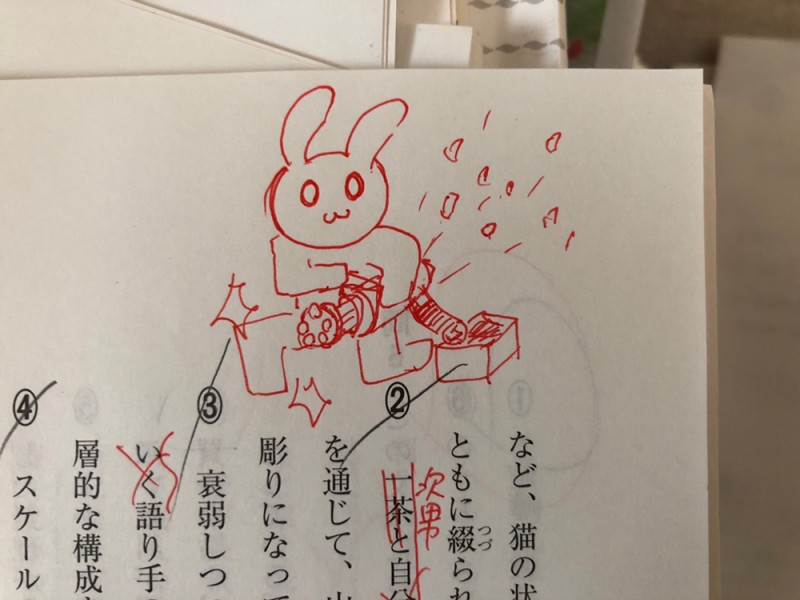 など、猫の状
ともに綴られ
つづ
次男
② 一茶と自分
を通じて、
彫りになって
③ 衰弱しつ
いく語り手の
層的な構成
④ スケール